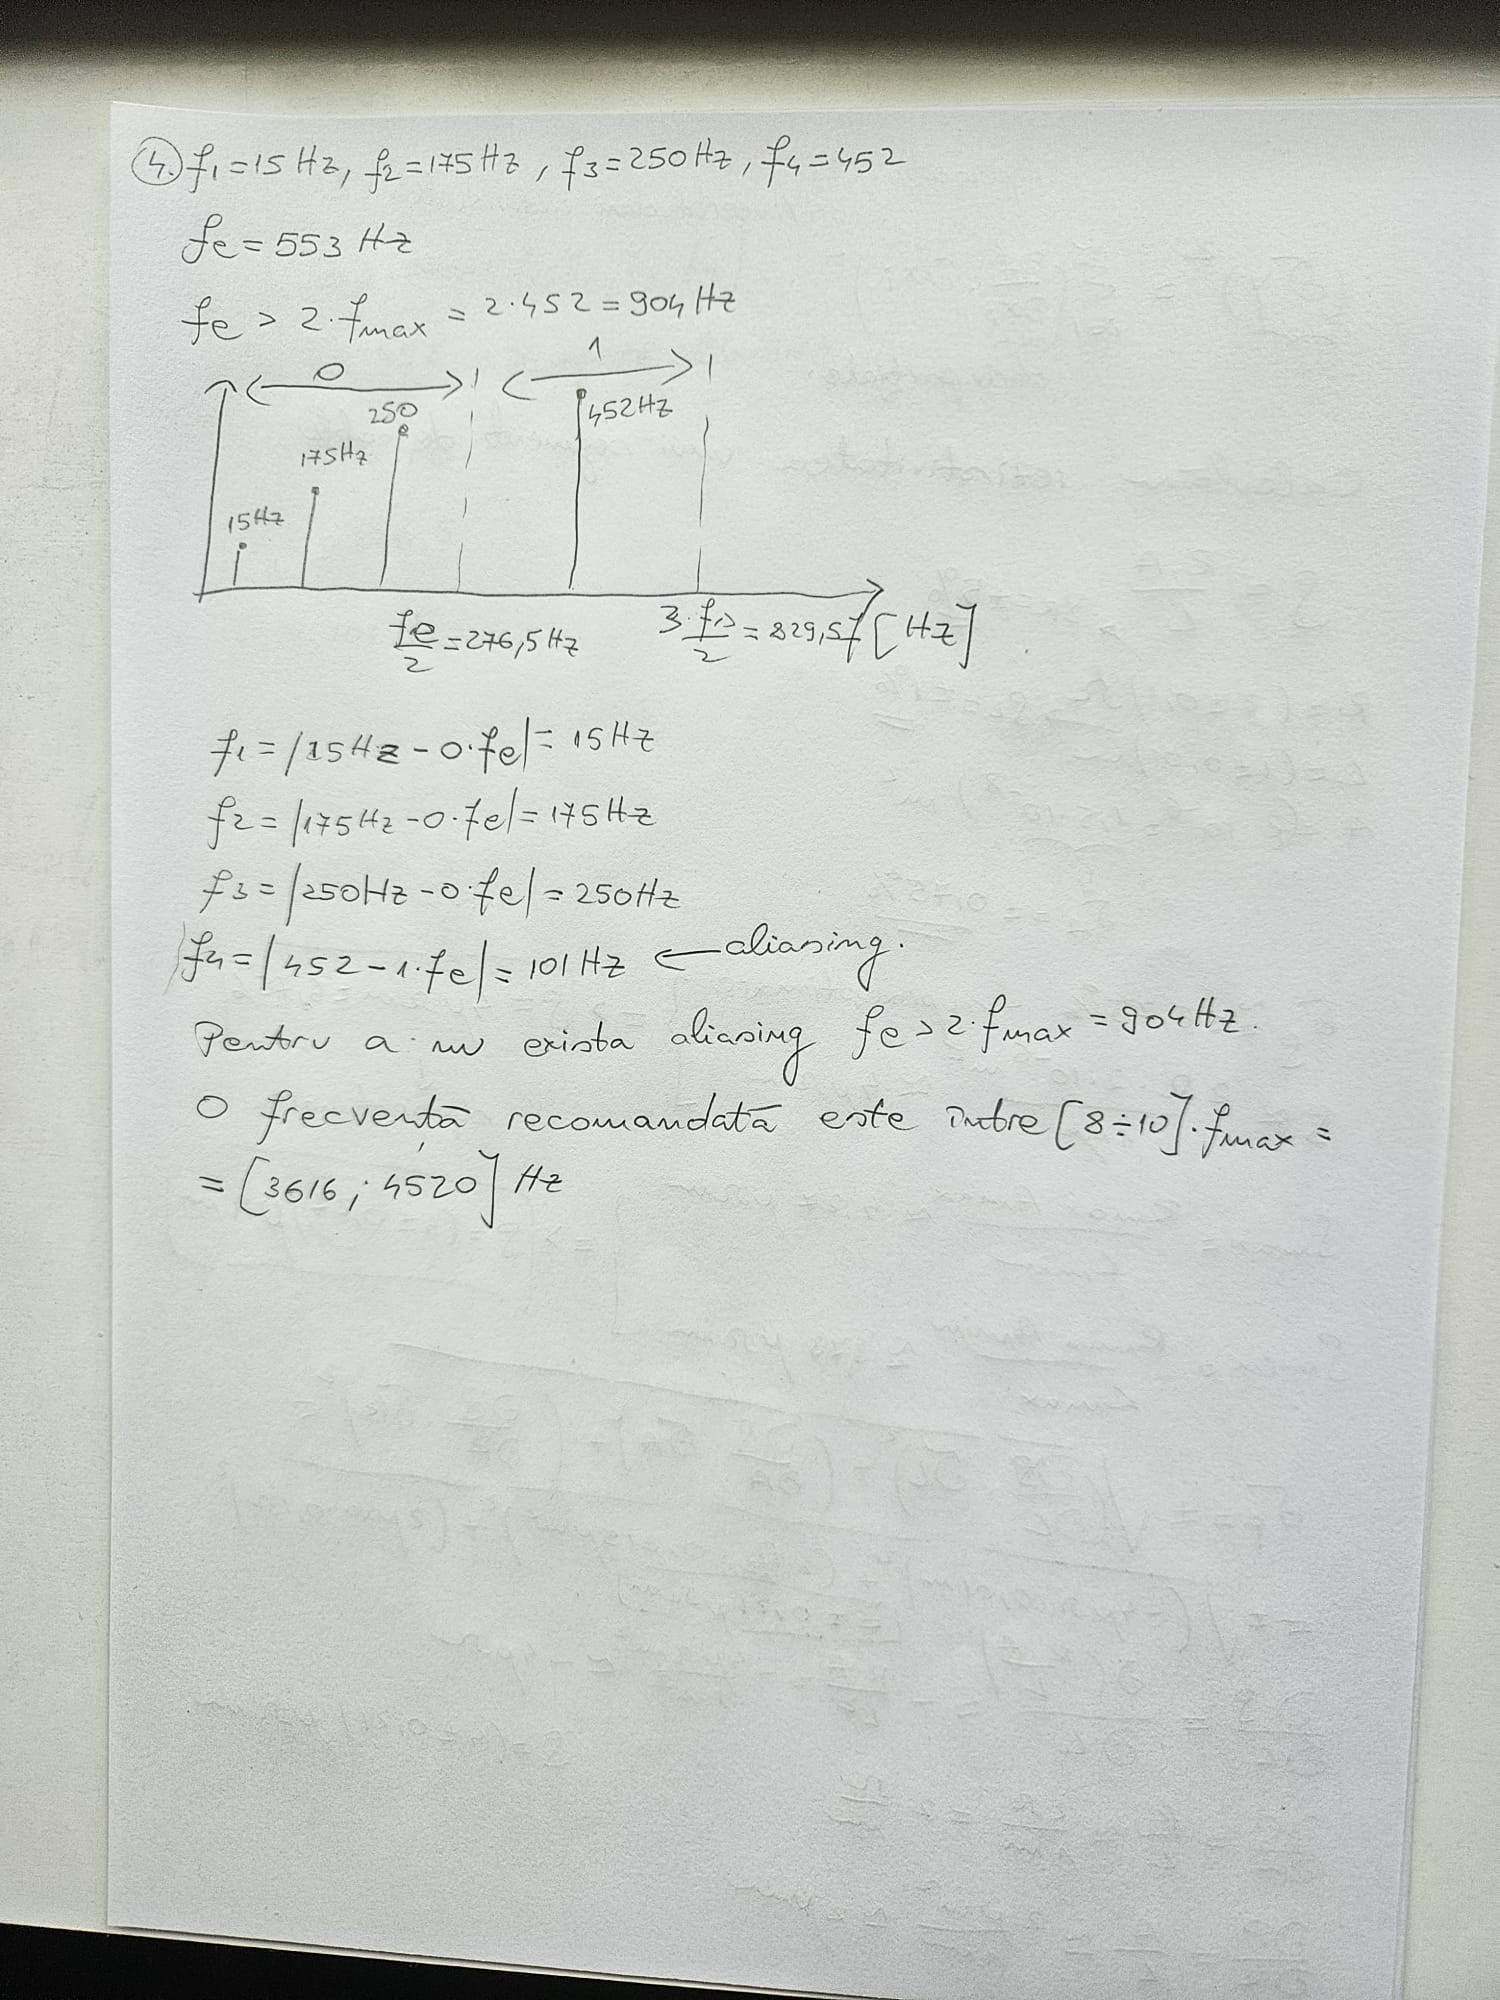 4. f1=15 Hz, f2=175Hz, f3=250Hz, f4=452
fe=553 Hz
fe > 2·fmax = 2·452=904Hz
0
1
250
452Hz
175Hz
15Hz
fe/2=276,5Hz
3·fe/2=829,5 f[Hz]
f1=|15Hz-0·fe|=15Hz
f2=|175Hz-0·fe|=175Hz
f3=|250Hz-0·fe|=250Hz
f4=|452-1·fe|=101Hz ← aliasing.
Pentru a nu exista aliasing fe>2·fmax=904Hz.
O frecvență recomandată este între [8÷10]·fmax=
=[3616; 4520] Hz